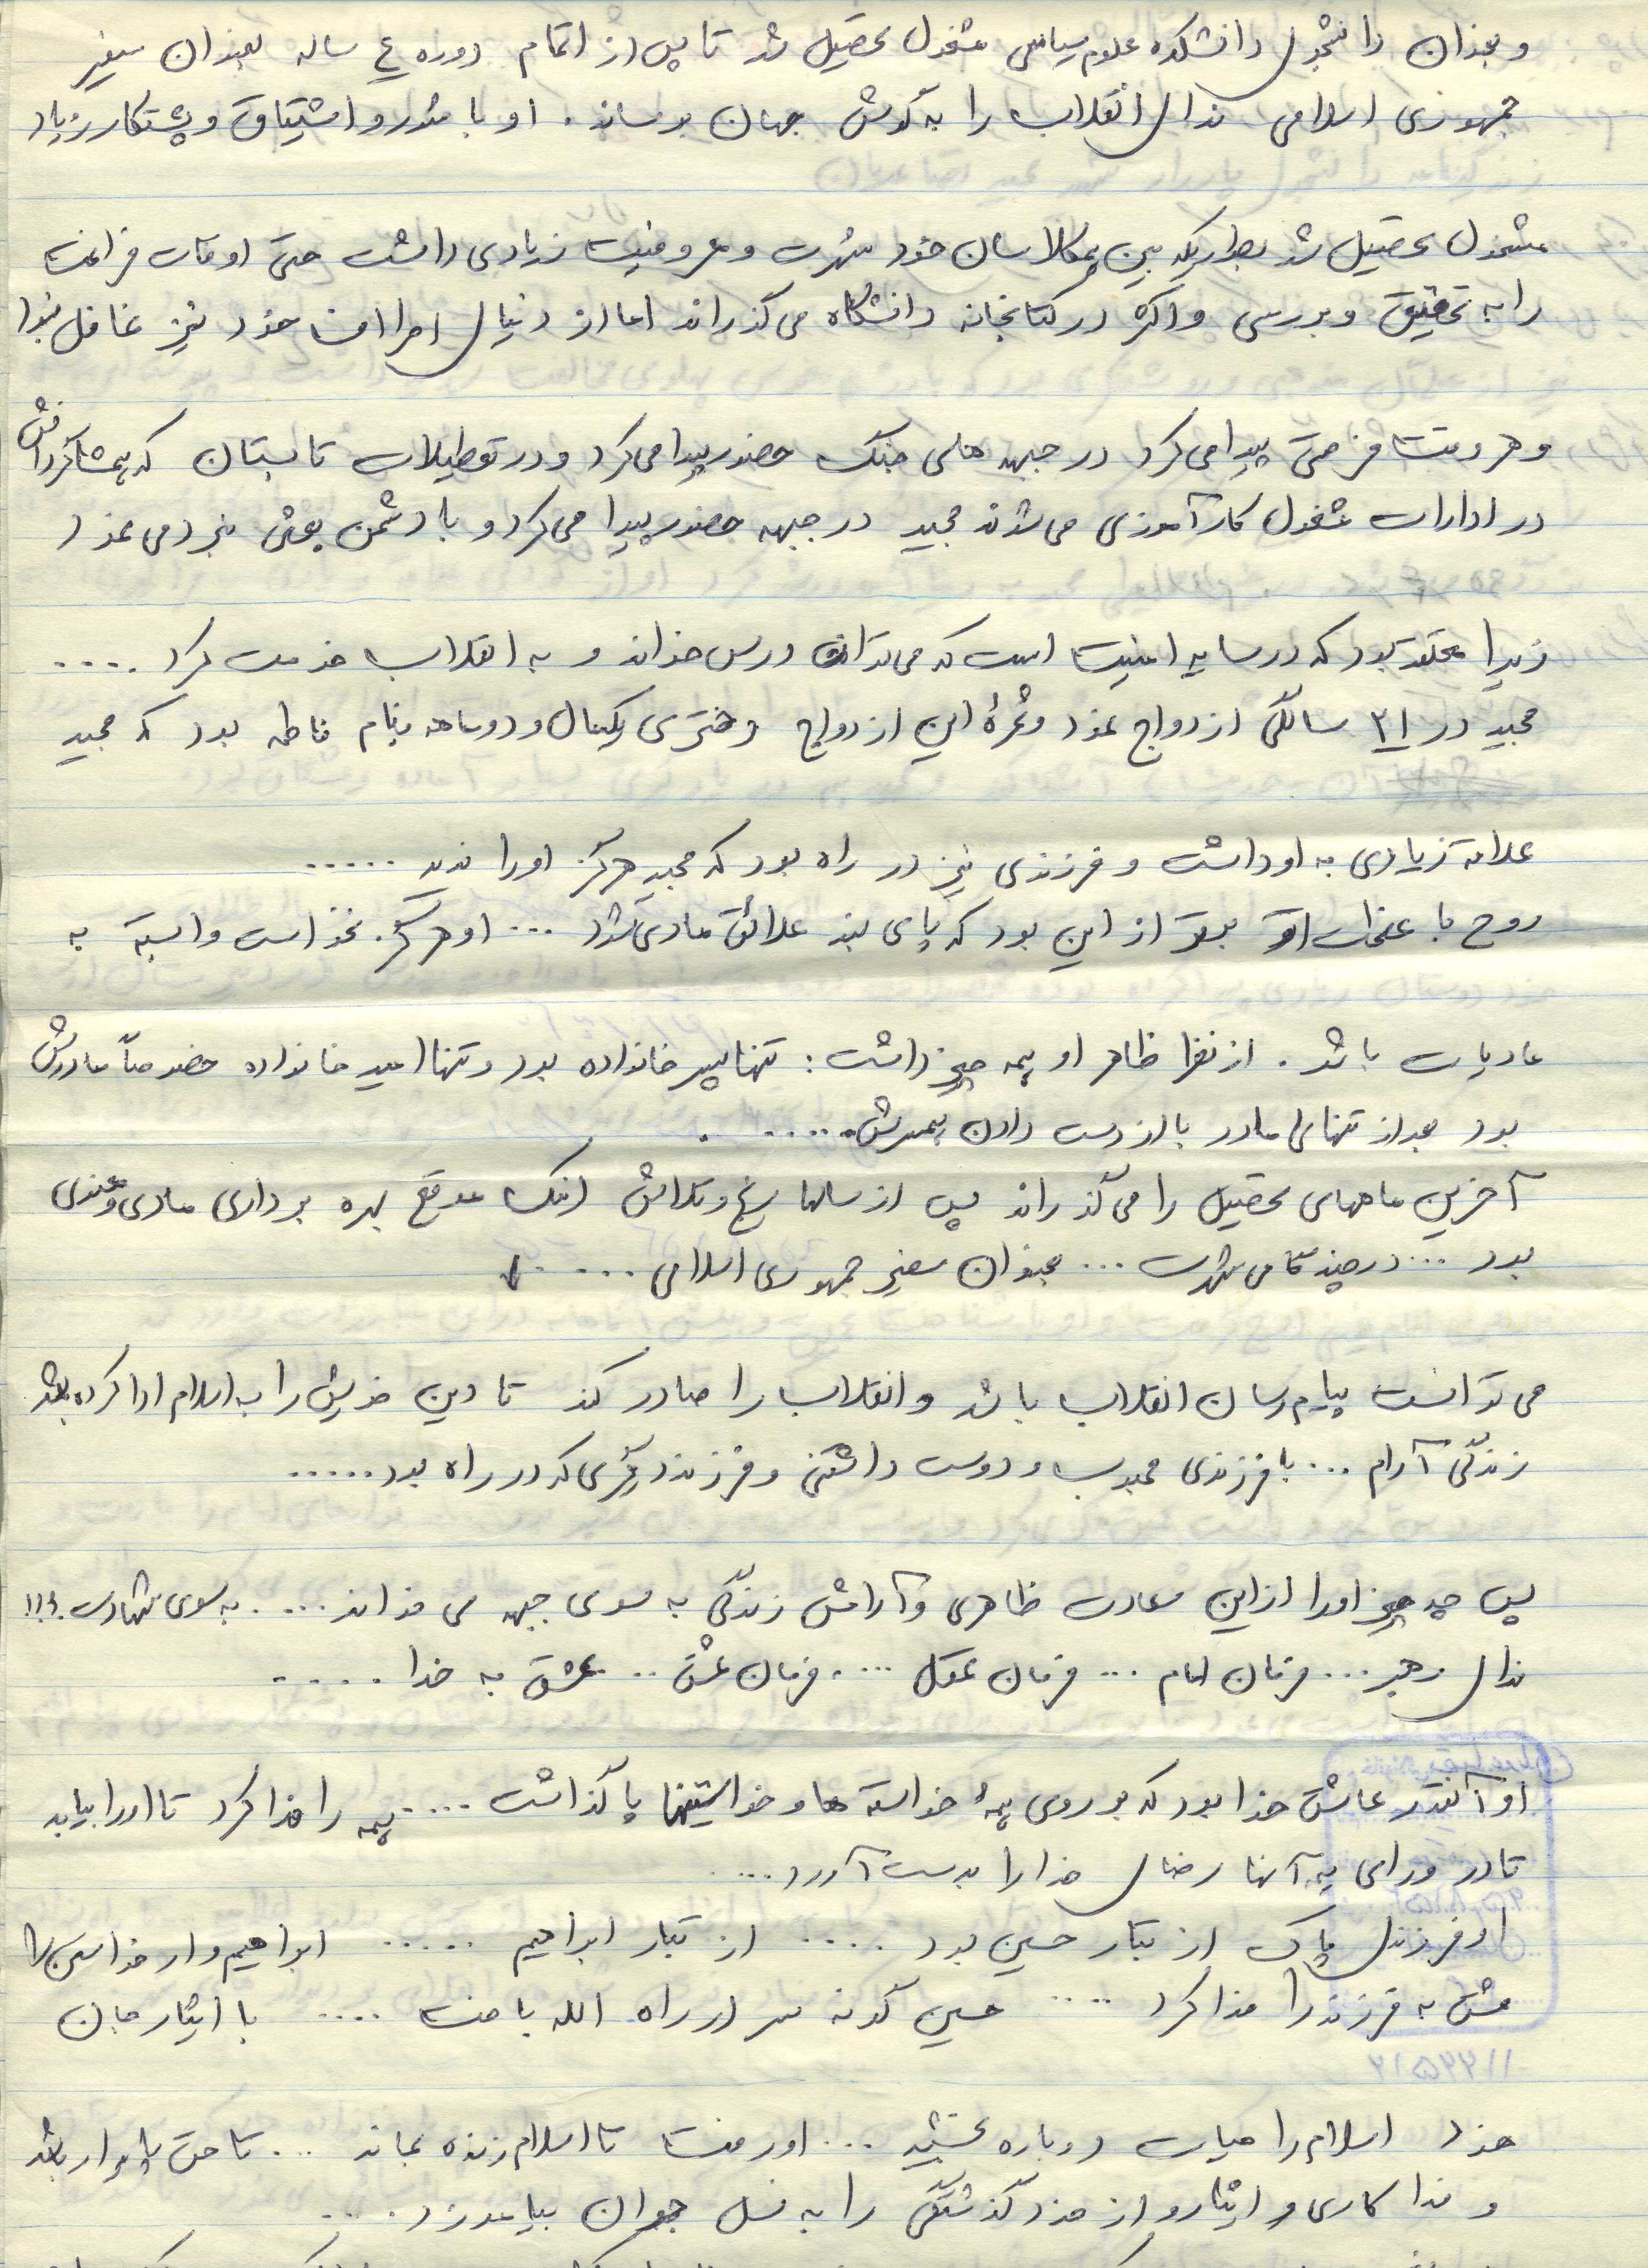 و بعنوان دانشجوی دانشکده علوم سیاسی مشغول تحصیل شد تا پس از اتمام دوره ۴ ساله بعنوان سفیر
جمهوری اسلامی ندای انقلاب را به گوش جهان برساند . او با شور و اشتیاق و پشتکار زیاد
مشغول تحصیل شد بطوریکه بین همکلاسان خود شهرت و معروفیت زیادی داشت حتی اوقات فراغت
را به تحقیق و بررسی و اکثراً در کتابخانه دانشگاه می گذراند اما از دنیای اطراف خود نیز غافل نبود
و هر وقت فرصتی پیدا می کرد در جبهه های جنگ حضور پیدا می کرد و در تعطیلات تابستان که همشاگردانش
در ادارات مشغول کارآموزی می شدند مجید در جبهه حضور پیدا می کرد و با دشمن بعثی نبرد می نمود
زیرا معتقد بود که در سایه امنیت است که می توان درس خواند و به انقلاب خدمت کرد ....
مجید در ۲۱ سالگی ازدواج نمود و ثمرۀ این ازدواج دختری یکسال و دو ماهه بنام فاطمه بود که مجید
علاقه زیادی به او داشت و فرزندی نیز در راه بود که مجید هرگز او را ندید .....
روح با عظمت او برتر از این بود که پای بند علائق مادی شود ... او هرگز نخواست وابسته به
مادیات باشد . از نظر ظاهر او همه چیز داشت : تنها پسر خانواده بود و تنها امید خانواده خصوصاً مادرش
بود بعد از تنهایی مادر با از دست دادن همسرش ......
آخرین ماههای تحصیل را می گذراند پس از سالها رنج و تلاش اینک موقع بهره برداری مادی و معنوی
بود ... در چند گامی شهرت ... بعنوان سفیر جمهوری اسلامی .....
می توانست پیام رسان انقلاب باشد و انقلاب را صادر کند تا دین خویش را به اسلام ادا کرده باشد
زندگی آرام ... با فرزندی محبوب و دوست داشتنی و فرزند دیگری که در راه بود .....
پس چه چیز او را از این سعادت ظاهری و آرامش زندگی به سوی جبهه می خواند .... به سوی شهادت .؟!!
ندای رهبر ... فرمان امام ... فرمان عقل .... فرمان عشق .. عشق به خدا .....
او آنقدر عاشق خدا بود که بر روی همۀ خواسته ها و خواستنیها پا گذاشت .... همه را فدا کرد تا او را بیابد
تا در ورای همه آنها رضای خدا را بدست آورد ...
او فرزندی پاک از تبار حسین بود .... از تبار ابراهیم ..... ابراهیم وار خواستن ها
عشق به فرزند را فدا کرد .... حسین گونه سر در راه الله باخت .... با ایثار جان
خود اسلام را حیات دوباره بخشید ... او رفت تا اسلام زنده بماند ... تا حق پایدار باشد
و فداکاری و ایثار و از خود گذشتگی را به نسل جوان بیاموزد ....